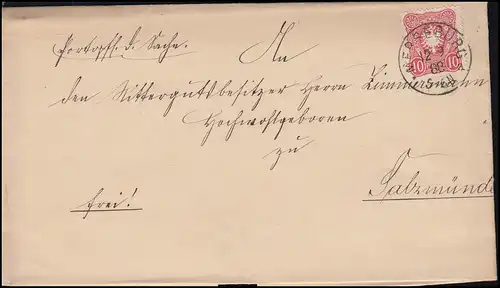 Portopfl. d. Sache.
An
den Rittergutsbesitzer Herrn Zimmermann
Hochwohlgeboren
zu
Salzmünde
frei!
MERSEBURG
12 3
10 10